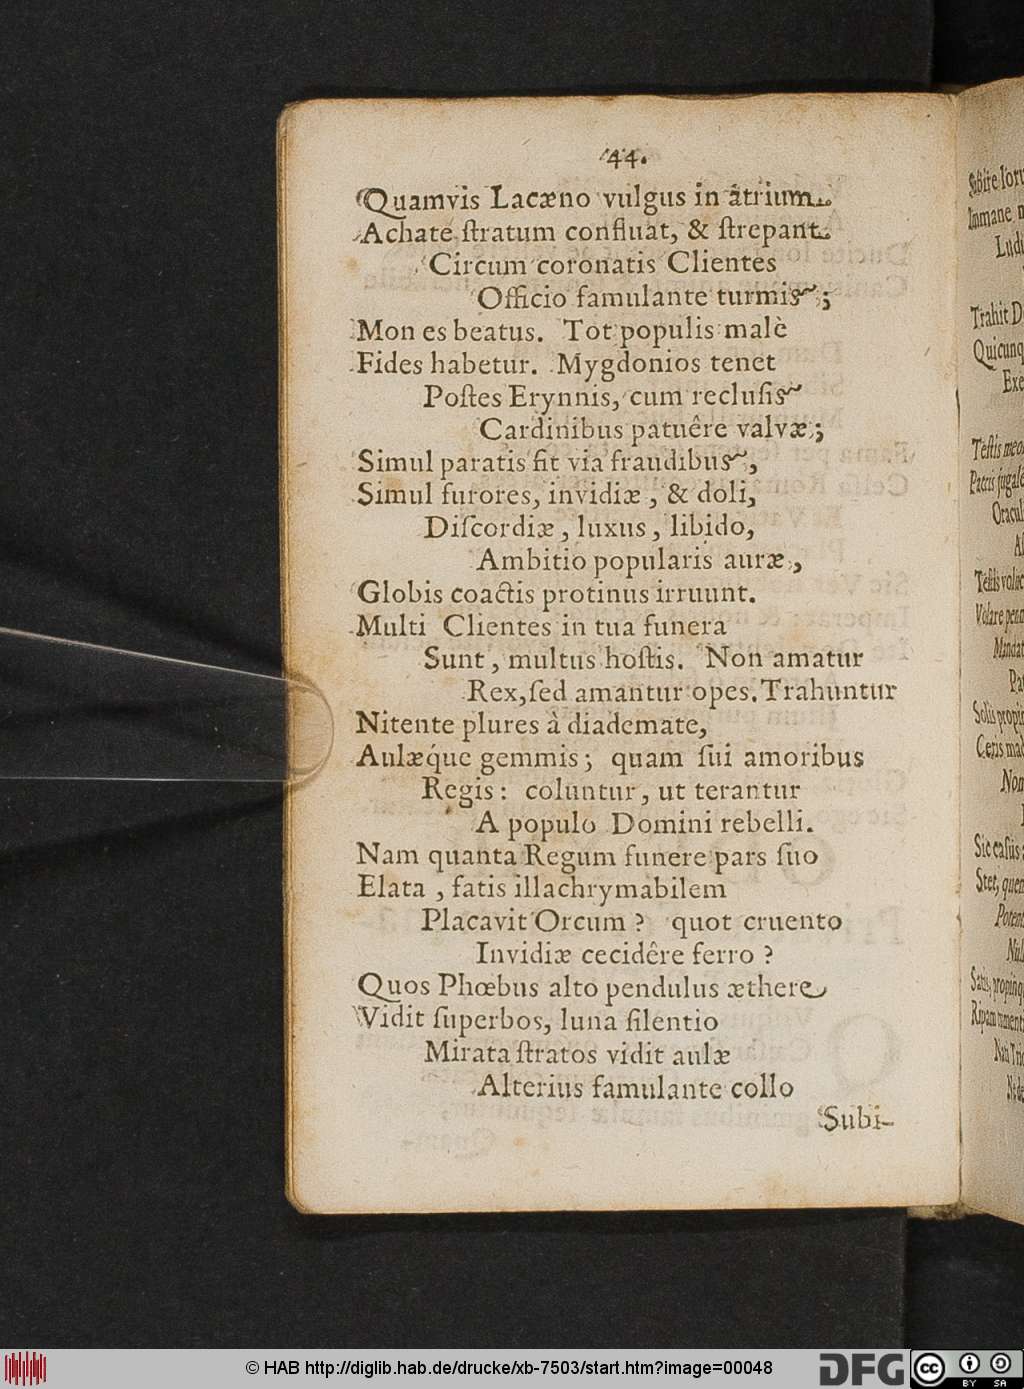 44.
Quamvis Lacæno vulgus in atrium
Achate ſtratum confluat, & ſtrepant
Circum coronatis Clientes
Officio famulante turmis;
Mon es beatus. Tot populis malè
Fides habetur. Mygdonios tenet
Poſtes Erynnis, cum recluſis
Cardinibus patuêre valvæ;
Simul paratis fit via fraudibus,
Simul furores, invidiæ, & doli,
Diſcordiæ, luxus, libido,
Ambitio popularis auræ,
Globis coactis protinus irruunt.
Multi Clientes in tua funera
Sunt, multus hoſtis. Non amatur
Rex, ſed amantur opes. Trahuntur
Nitente plures à diademate,
Aulæq́ue gemmis; quam ſui amoribus
Regis: coluntur, ut terantur
A populo Domini rebelli.
Nam quanta Regum funere pars ſuo
Elata, fatis illachrymabilem
Placavit Orcum? quot cruento
Invidiæ cecidêre ferro?
Quos Phœbus alto pendulus æthere
Vidit ſuperbos, luna ſilentio
Mirata ſtratos vidit aulæ
Alterius famulante collo
Subi-
Trahit
Quicunq
Teſtis
Patris
Solis
Ceris
Non
Sic caſus
Stet, quem
© HAB http://diglib.hab.de/drucke/xb-7503/start.htm?image=00048
DFG
CC BY SA